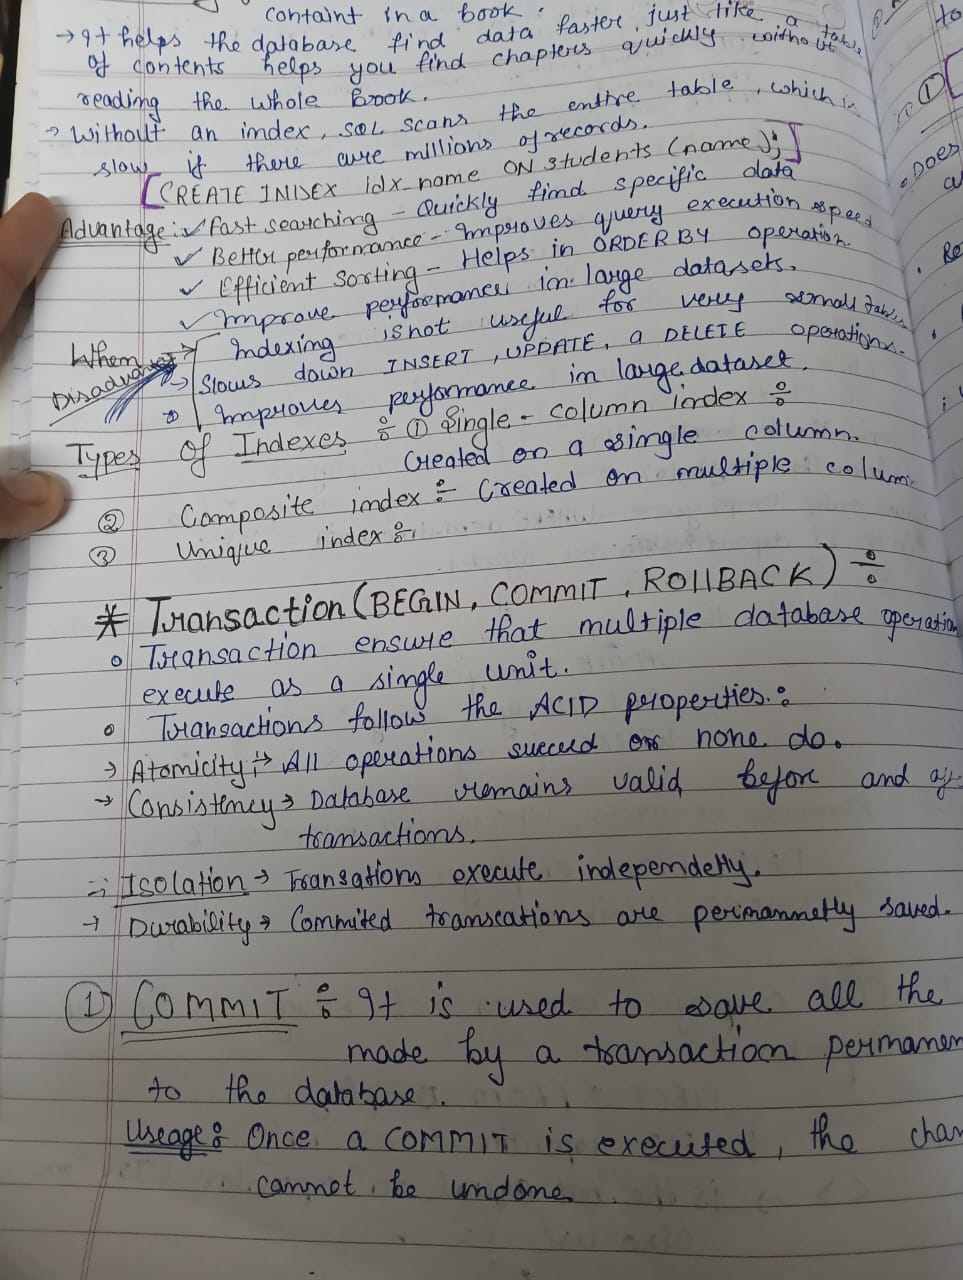 containt in a book.
→ It helps the database find data faster, just like a table
of contents helps you find chapters quickly without
reading the whole Book.
→ Without an index, SQL scans the entire table, which is
slow if there are millions of records.
[CREATE INDEX idx_name ON students (name);]
Advantage: ✓ Fast searching - Quickly find specific data
✓ Better performance - Improves query execution speed
✓ Efficient Sorting - Helps in ORDER BY operation.
✓ Improve performance in large datasets.
When → Indexing is not useful for very small table
Disadvantages → Slows down INSERT, UPDATE, a DELETE operations.
Improves performance in large dataset.
Types of Indexes : ① Single - column index :-
Created on a single column.
② Composite index :- Created on multiple colum
③ Unique index :-
* Transaction (BEGIN, COMMIT, ROllBACK) :-
o Transaction ensure that multiple database operation
execute as a single unit.
o Transactions follow the ACID properties.:
→ Atomicity → All operations succeed or none do.
→ Consistency → Database remains valid before and
transactions.
→ Isolation → Transations execute independetly.
→ Durability → Commited transcations are permannetly saved.
① COMMIT :- It is used to save all the
made by a transaction permanen
to the database.
Useage: Once a COMMIT is executed, the chan
cannot be undone
①
to
• DOES
• Re